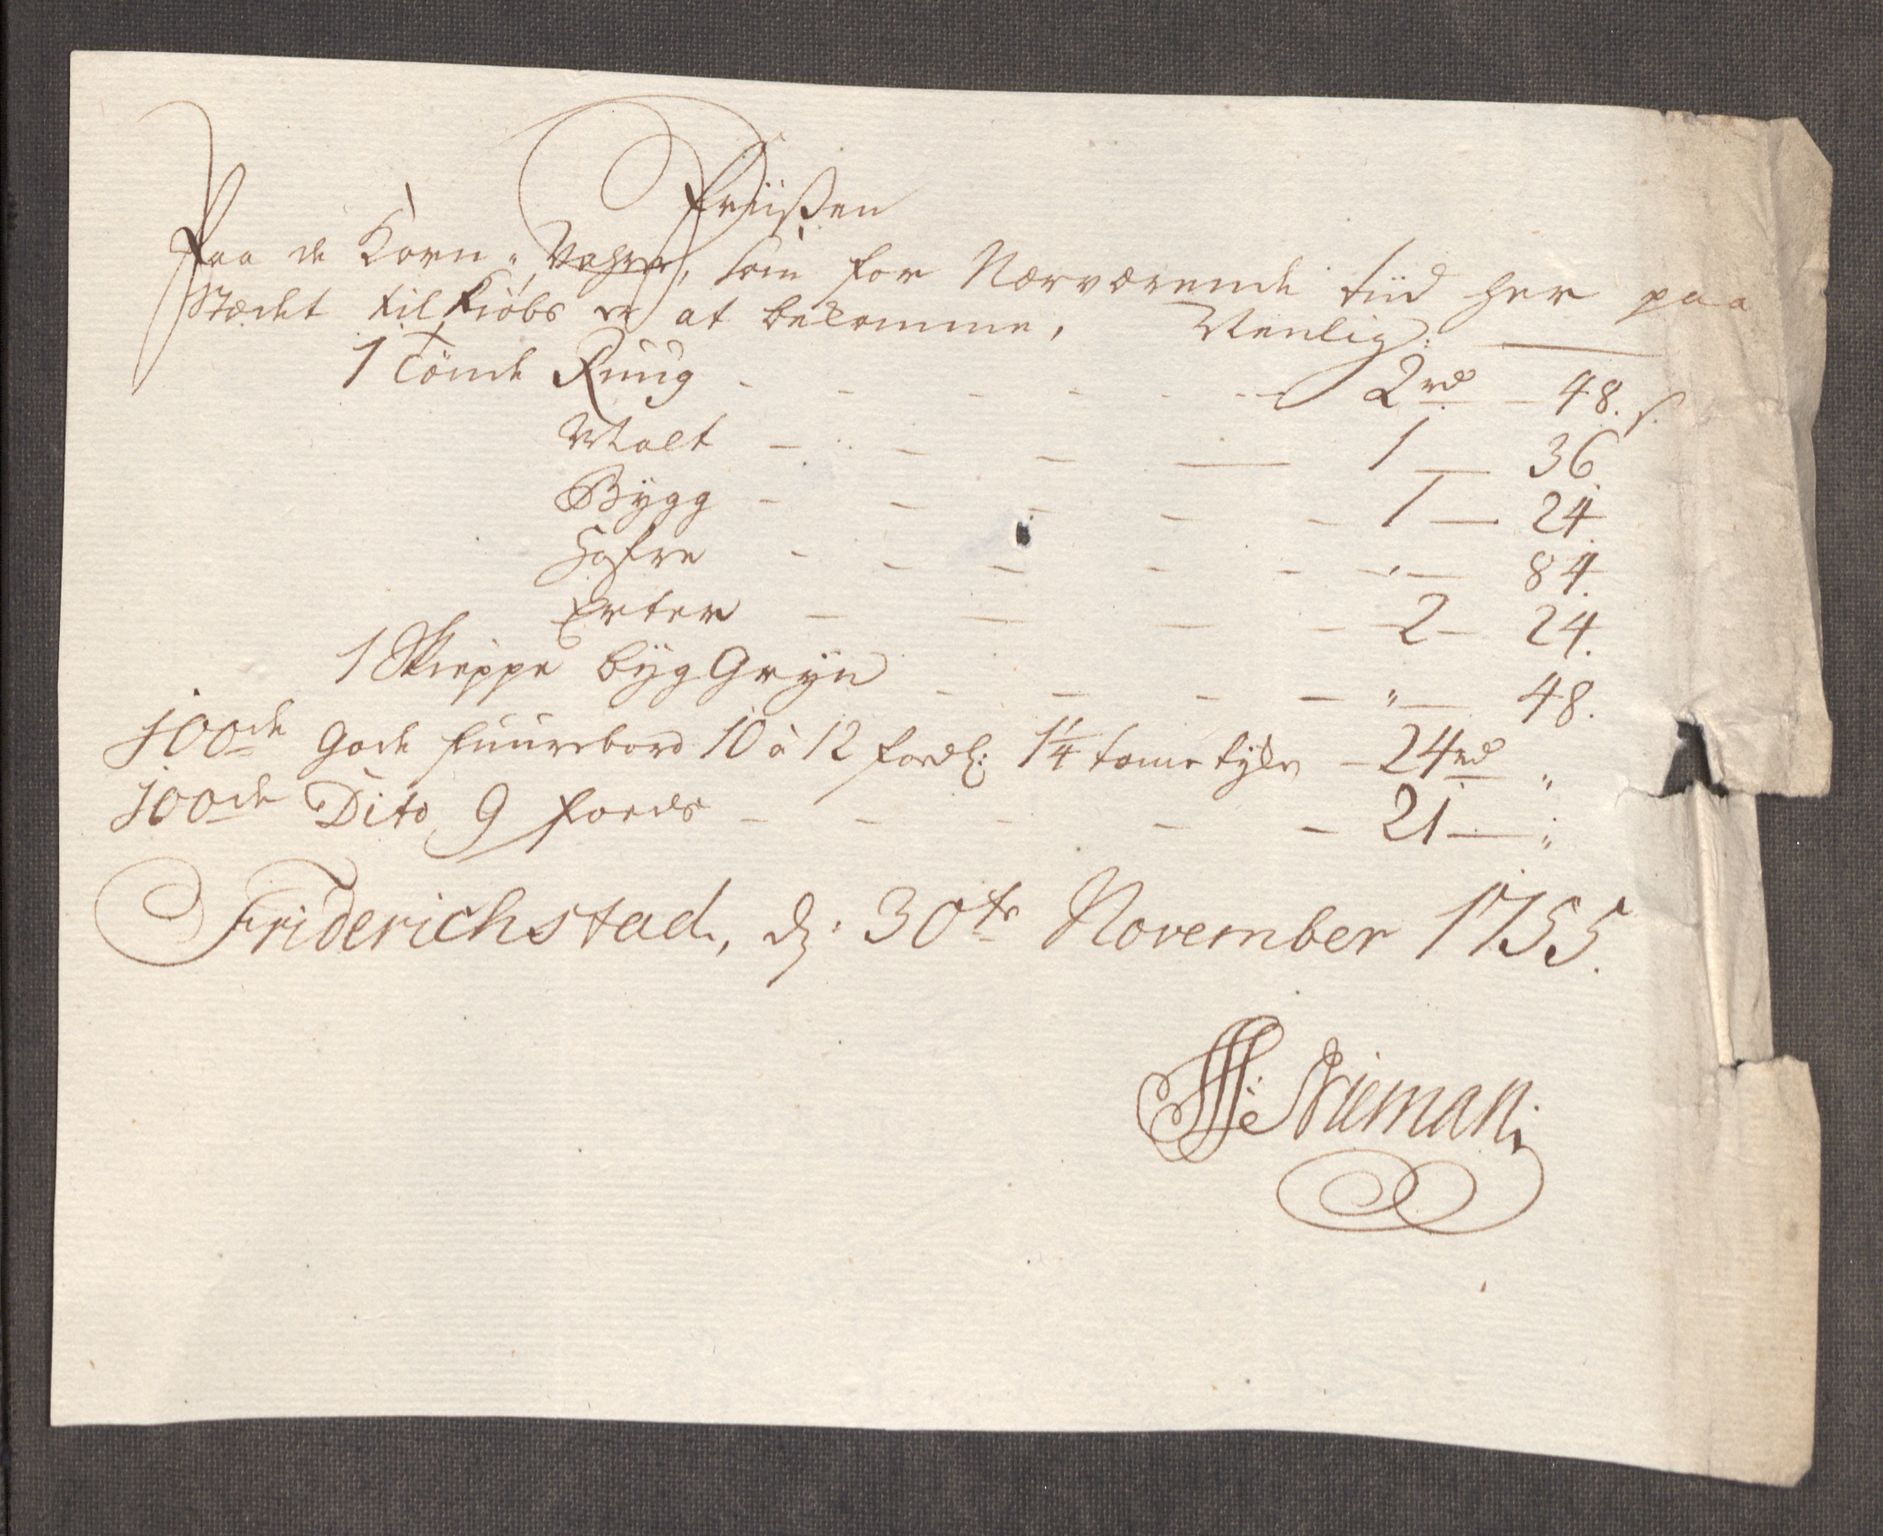 Priisen
Paa de Korn-Vahre, som for Nærværende tiid her paa
Stædet til Kiøbs er at bekomme, Nemlig:
1 Tønde Ruug - - - - - 2 rd - 48. s.
Malt - - - - 1 - 36.
Bygg - - - - - 1 - 24.
Hafre - - - - - " - 84.
Erter - - - - 2 - 24.
1 Skieppe byg Gryn - - - - " - 48.
100de gode fuurebord 10 à 12 fods l: 1 1/4 tome tyke - 24 rd "
100de Dito 9 foeds - - - - - 21 - "
Friderichstad, d: 30te November 1755.
Nieman.